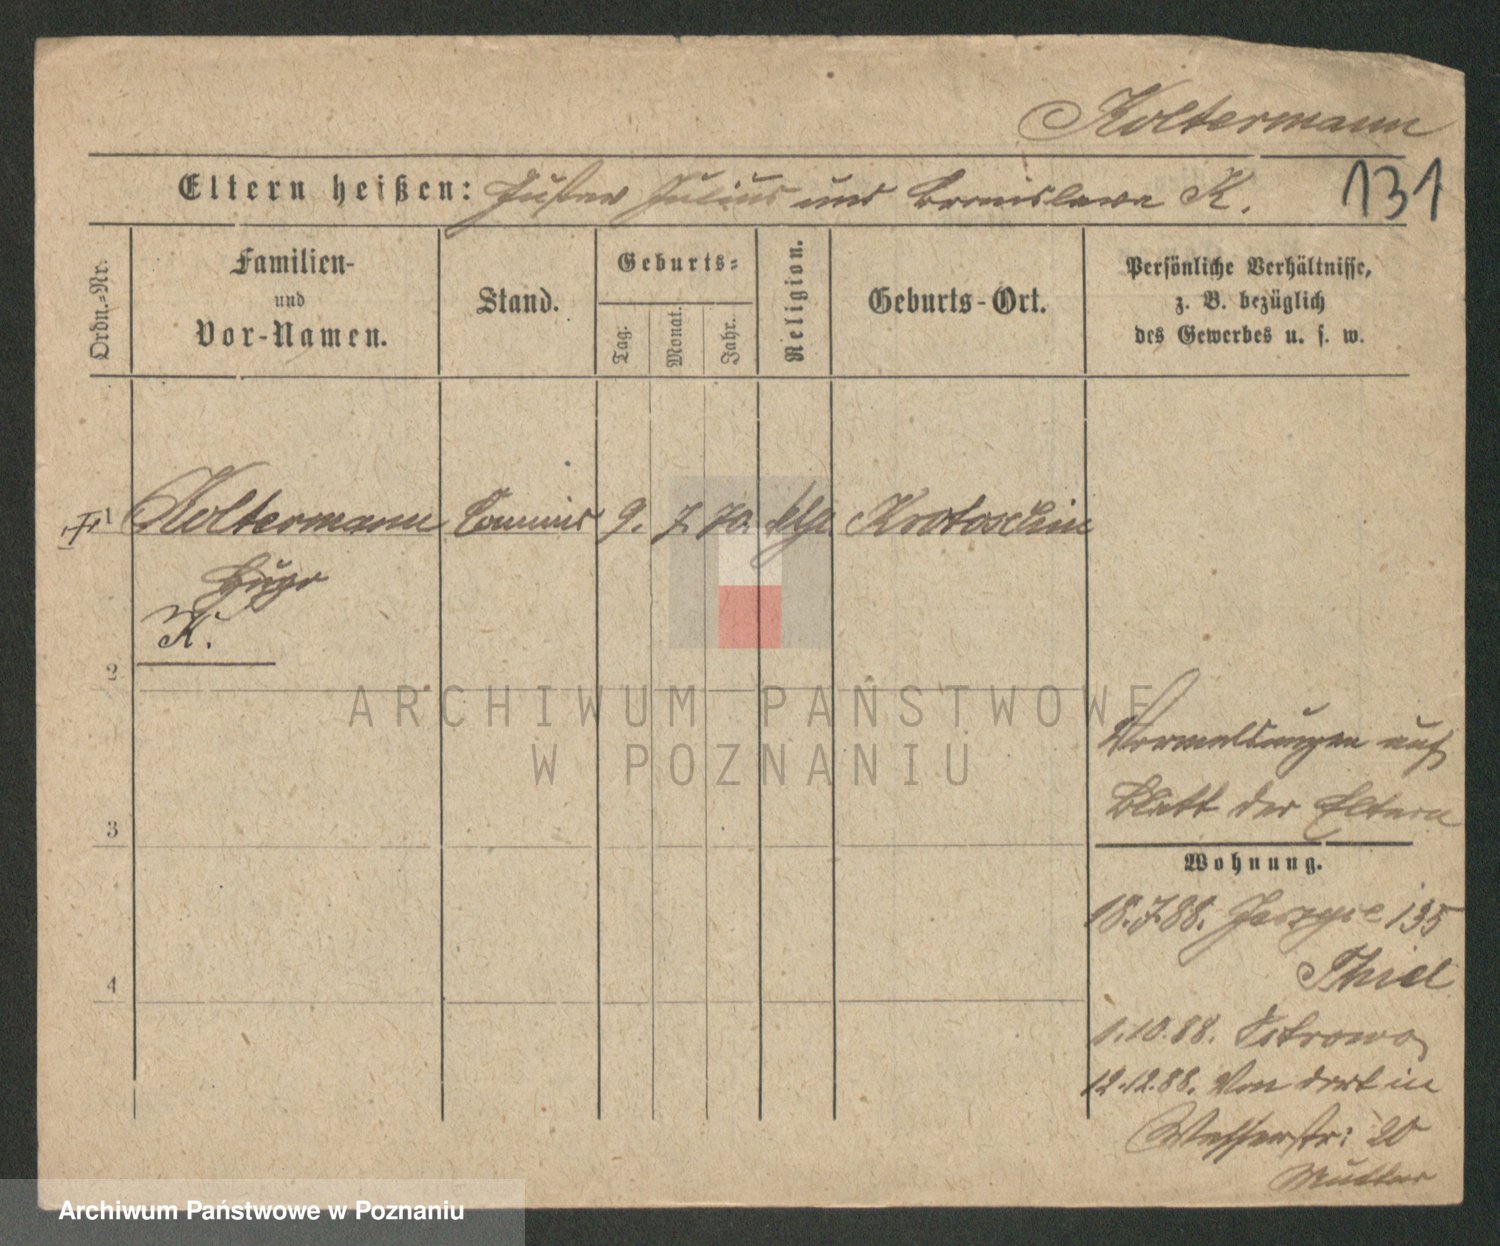 Koltermann
131
Eltern heißen: Gustav Julius und Bronislawa K.
Ordn.-Nr.
Familien-
und
Vor-Namen.
Stand.
Geburts-
Tag.
Monat.
Jahr.
Religion.
Geburts-Ort.
Persönliche Verhältnisse,
z. B. bezüglich
des Gewerbes u. s. w.
1 Koltermann Commis 9. 7. 70. Krotoschin
Hugo
K.
2
ARCHIWUM PAŃSTWOWE
W POZNANIU
Vormeldungen auf
Blatt der Eltern
3
Wohnung.
18.7.88. Jerzyce 135
Thiel
4
1.10.88. Ostrowo
12.12.88. Von dort in
20
Mutter
Archiwum Państwowe w Poznaniu